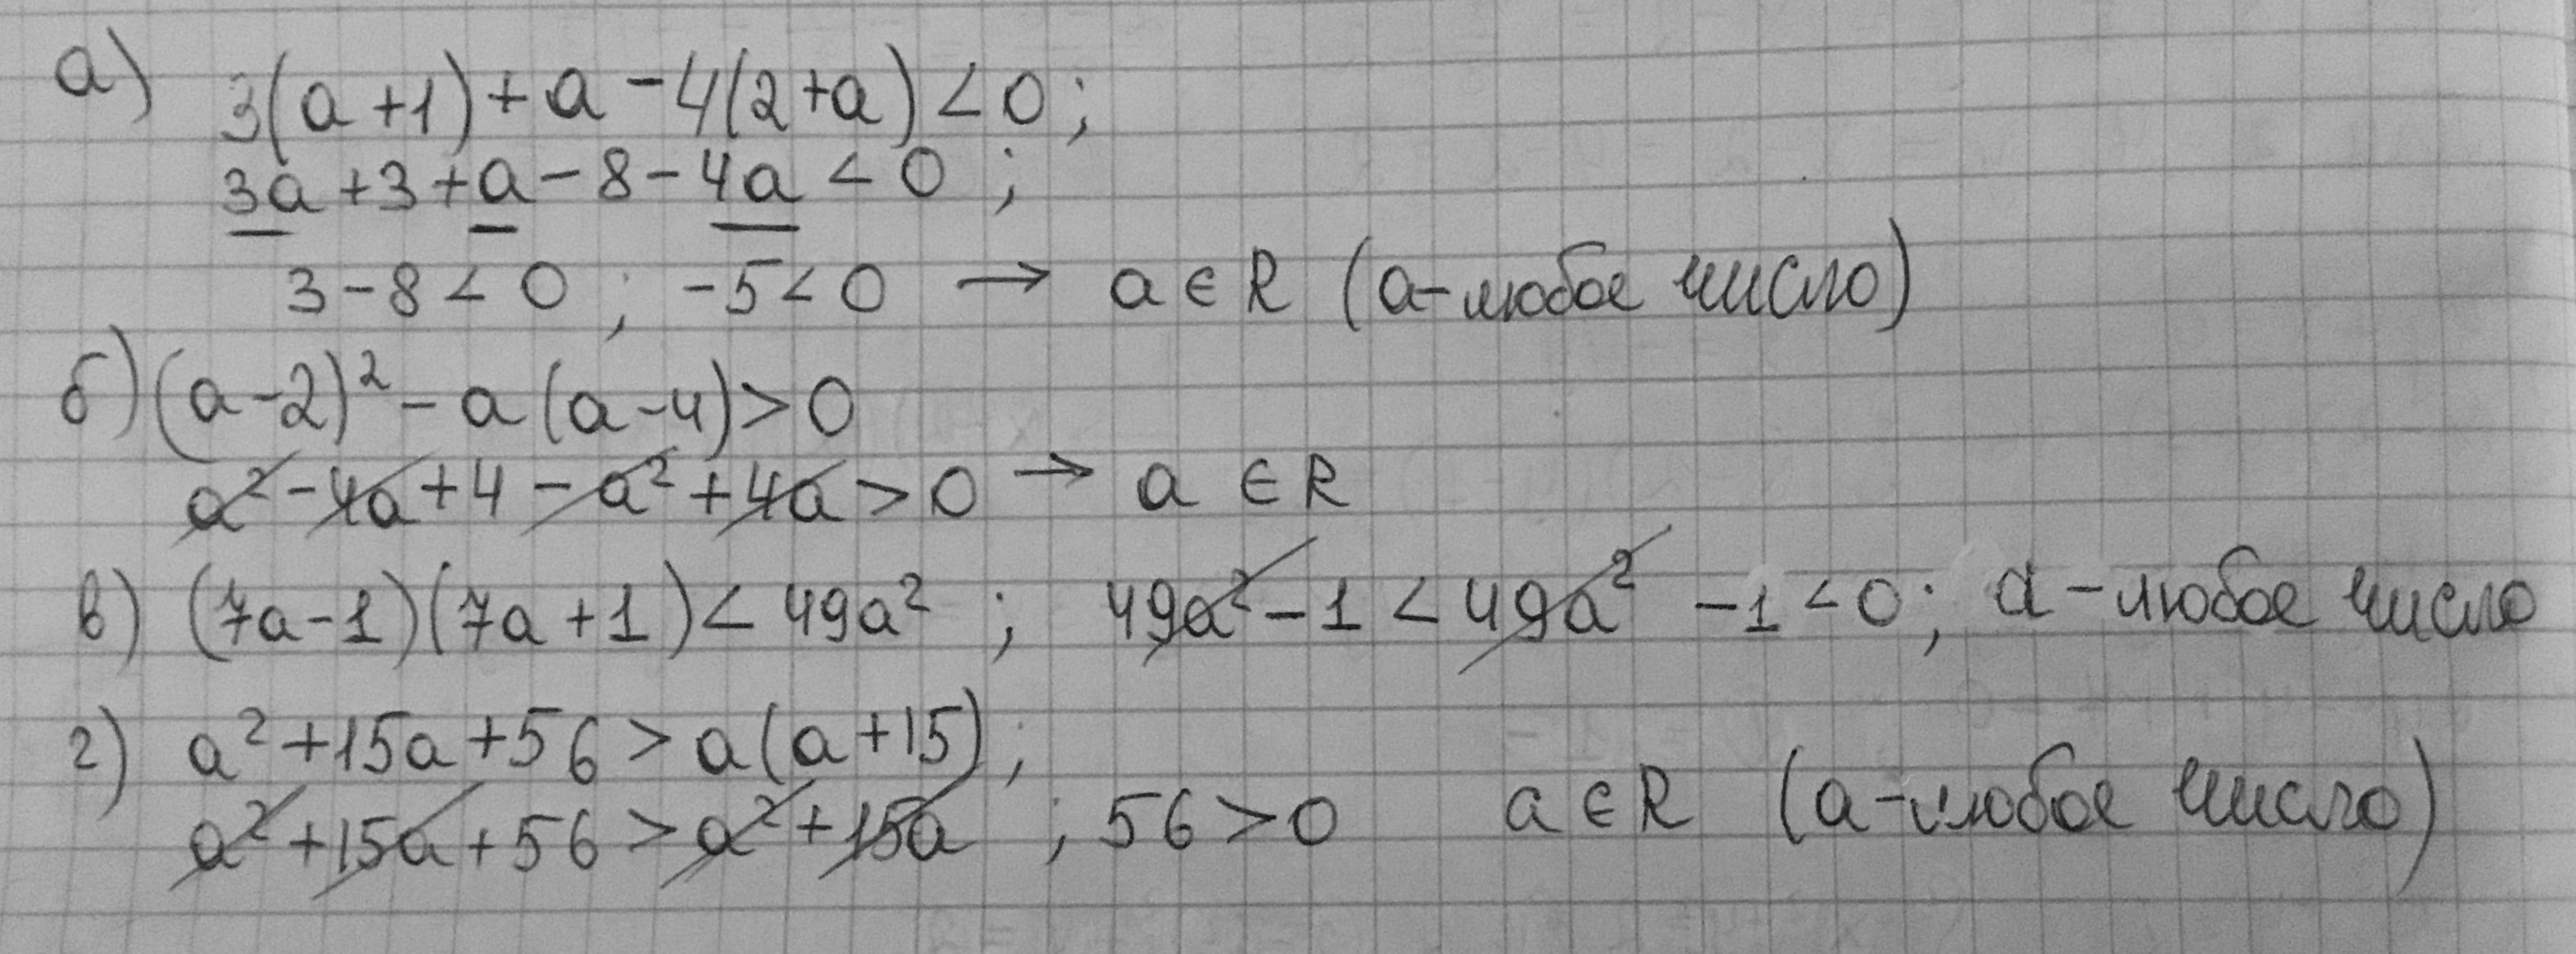 а) 3(a+1)+a-4(2+a)<0;
3a+3+a-8-4a<0;
3-8<0; -5<0 → a∈R (a-любое число)
б) (a-2)²-a(a-4)>0
a²-4a+4-a²+4a>0 → a∈R
в) (7a-1)(7a+1)<49a²; 49a²-1<49a² -1<0; a-любое число
г) a²+15a+56>a(a+15);
a²+15a+56>a²+15a; 56>0 a∈R (a-любое число)